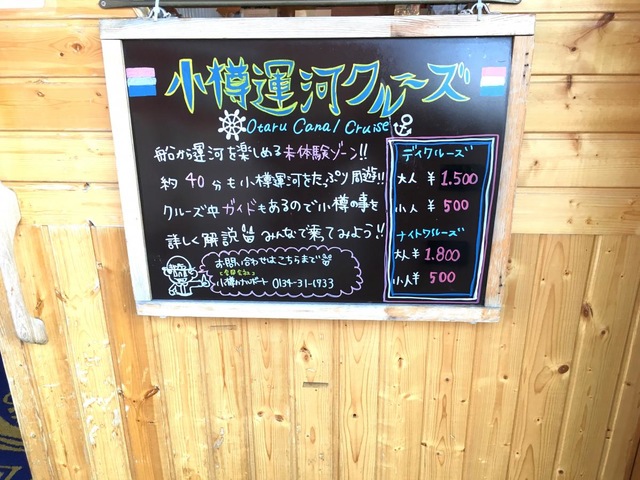 小樽運河クルーズ
Otaru Canal Cruise
船から運河を楽しめる未体験ゾーン!!
約40分も小樽運河をたっぷり周遊!!
クルーズ中ガイドもあるので小樽の事を
詳しく解説 みんなで乗ってみよう!!
お問い合わせはこちらまで
小樽カナルボート 0134-31-1733
デイクルーズ
大人 ¥1.500
小人 ¥500
ナイトクルーズ
大人 ¥1.800
小人 ¥500